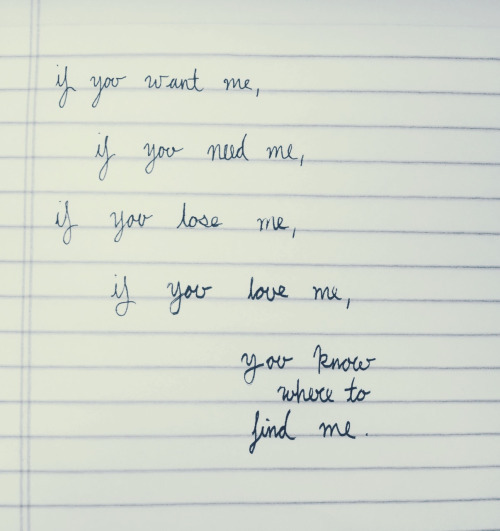 if you want me,
if you need me,
if you lose me,
if you love me,
you know
where to
find me.